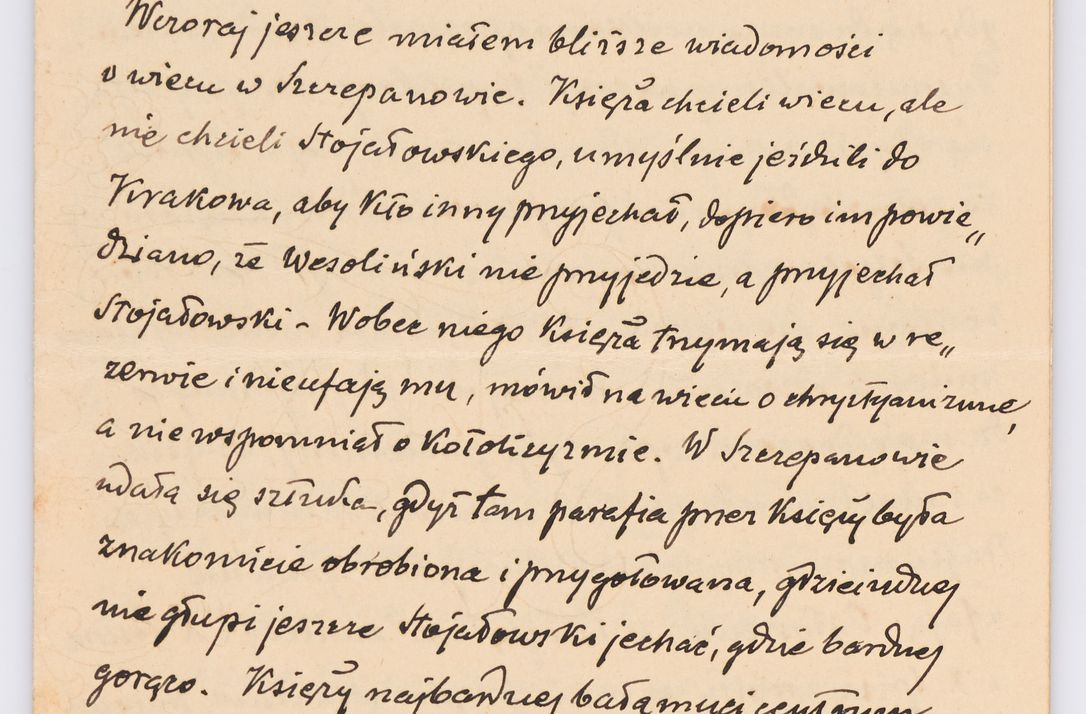 Wczoraj jeszcze miałem bliższe wiadomości
o wiecu w Szczepanowie. Księża chcieli wiecu, ale
nie chcieli Stojałowskiego, umyślnie jeździli do
Krakowa, aby kto inny przyjechał, dopiero im powie„
dziano, że Wesoliński nie przyjedzie, a przyjechał
Stojałowski - Wobec niego Księża trzymają się w re„
zerwie i nieufają mu, mówił na wiecu o chrystyanizmie,
a nie wspomniał o Kotolicyzmie. W Szczepanowie
udała się sztuka, gdyż tam parafia przez Księży była
znakomicie obrobiona i przygotowana, gdzieindziej
nie głupi jeszcze Stojałowski jechać, gdzie bardziej
gorąco. Księży najbardziej bałamuci centrum